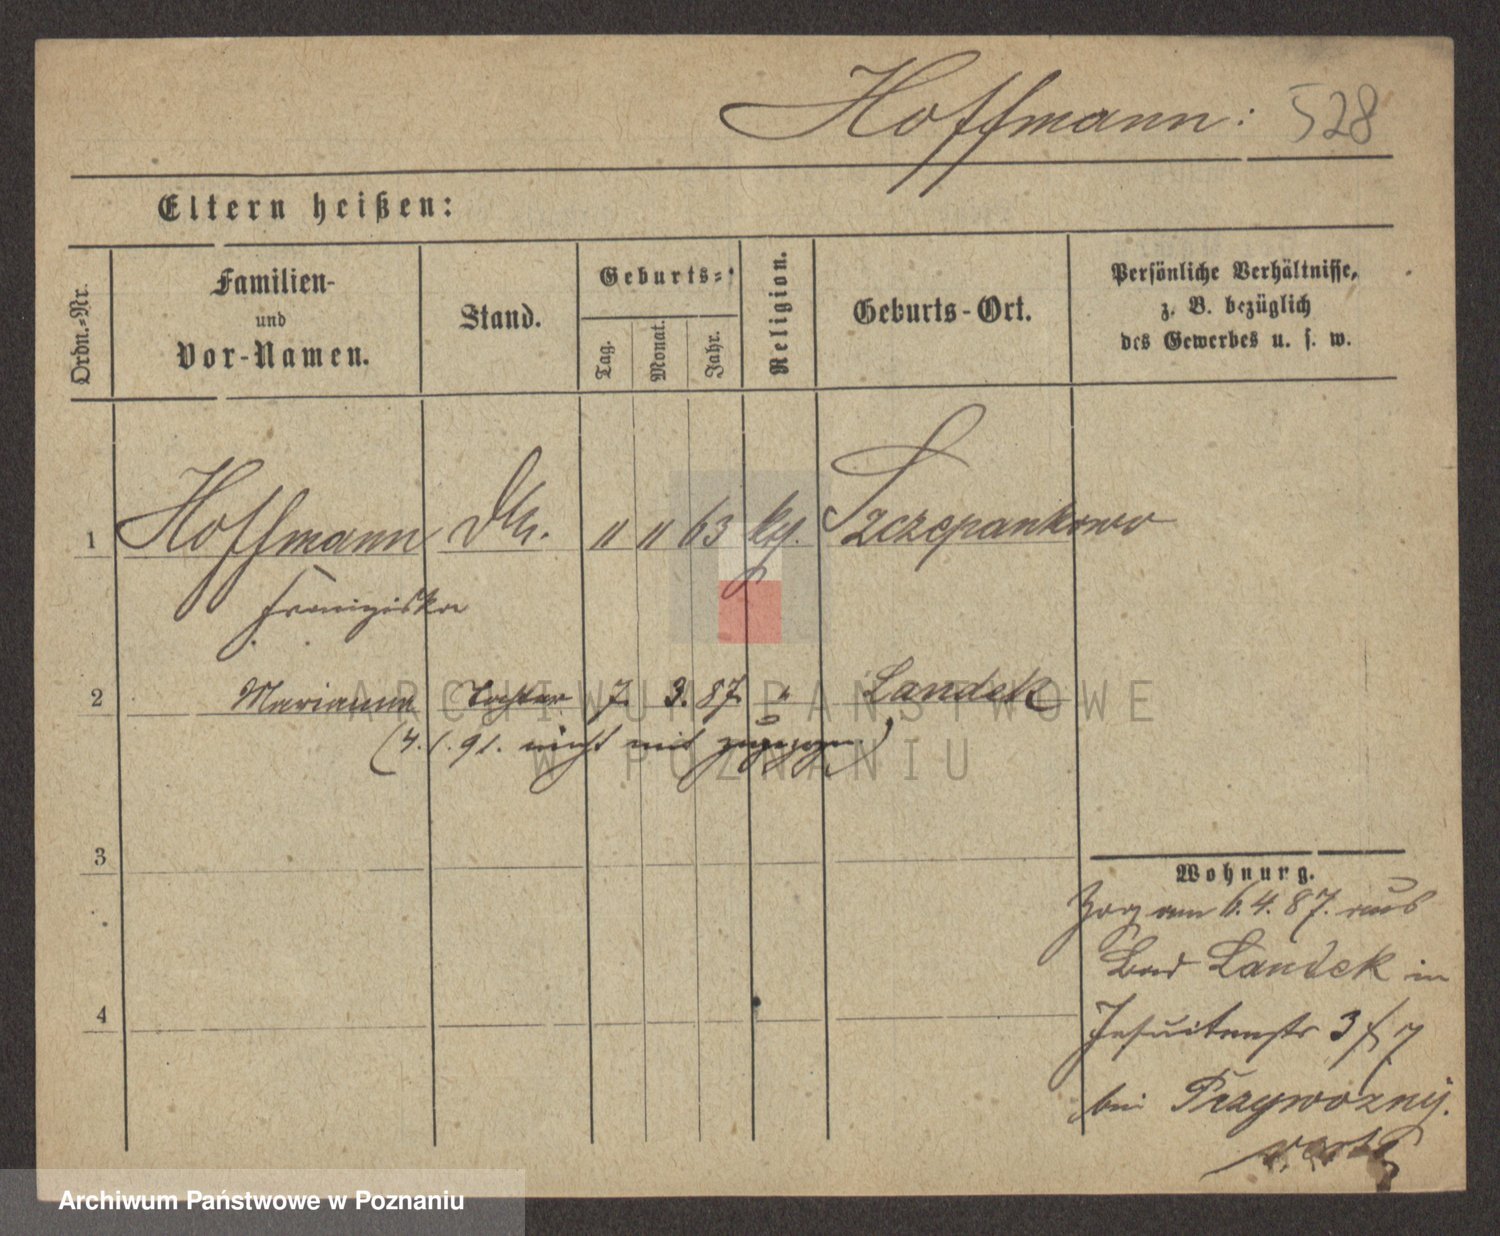 Hoffmann: 528
Eltern heißen:
Ordn.-Nr.
Familien-
und
Vor-Namen.
Stand.
Geburts-
Tag.
Monat.
Jahr.
Religion.
Geburts-Ort.
Persönliche Verhältnisse,
z. B. bezüglich
des Gewerbes u. s. w.
1 Hoffmann " " 63 kg. Szczepankowo
Franziska
2 Marianna Tochter 7. 3. 87. " Landek
(4.1.91. nicht mit zugezogen)
3
4
Wohnung.
Zog am 6.4.87. aus
Bad Landek in
Jesuitenstr 3
bei Przywozny.
verte
ARCHIWUM PAŃSTWOWE
W POZNANIU
Archiwum Państwowe w Poznaniu